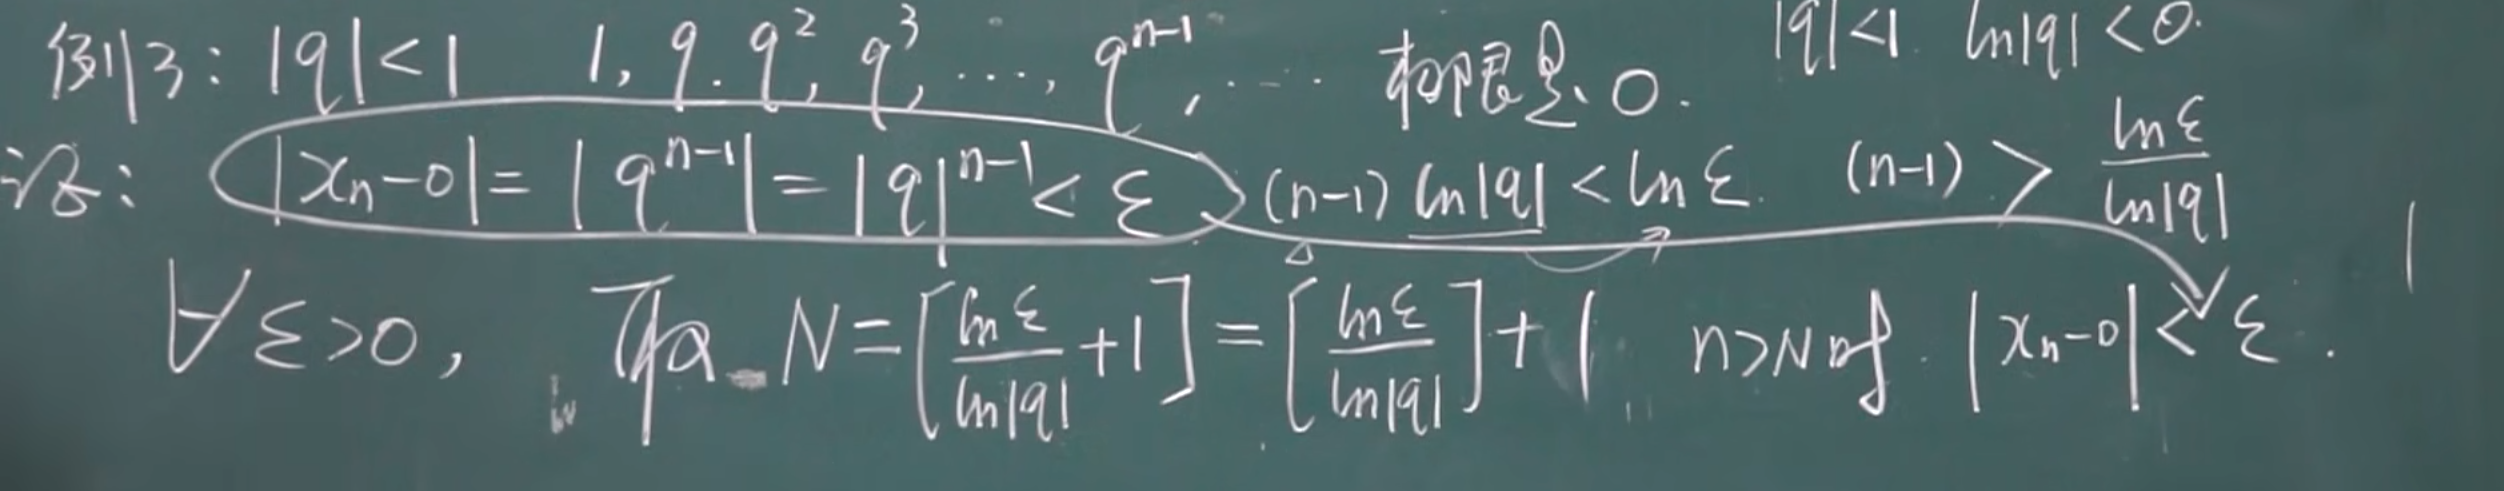 例3: |q|<1 1, q. q², q³, ..., qⁿ⁻¹, ... 极限是 0. |q|<1 ln|q|<0.
证: |xₙ-0|=|qⁿ⁻¹|=|q|ⁿ⁻¹<ε (n-1) ln|q|<lnε. (n-1) > lnε/ln|q|
∀ε>0, 取 N=[lnε/ln|q| +1]=[lnε/ln|q|]+1 n>N时. |xₙ-0|<ε.